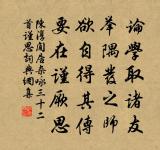 論學取諸友
舉隅叢之師
欲自得其傳
要在謹厥思
陳淳閒居雜咏三十二
首謹思詞典網集